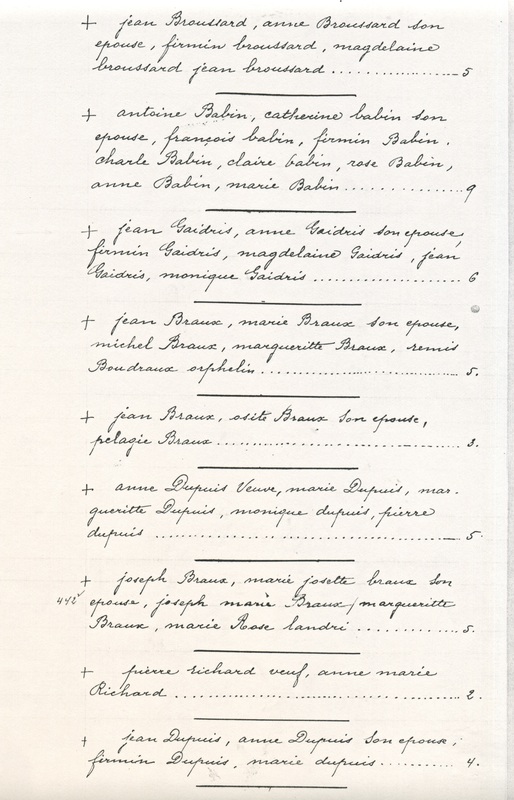 + jean Broussard, anne Broussard son
epouse, firmin broussard, magdelaine
broussard jean broussard .................. 5
+ antoine Babin, catherine babin son
epouse, françois babin, firmin Babin.
charle Babin, claire babin, rose Babin,
anne Babin, marie Babin .............. 9
+ jean Gaidris, anne Gaidris son epouse,
firmin Gaidris, magdelaine Gaidris, jean
Gaidris, monique Gaidris .................. 6
+ jean Braux, marie Braux son epouse,
michel Braux, margueritte Braux, remis
Boudraux orphelin ........................ 5.
+ jean Braux, osite Braux son epouse,
pelagie Braux .............................. 3.
+ anne Dupuis Veuve, marie Dupuis, mar.
gueritte Dupuis, monique dupuis, pierre
dupuis .................................... 5.
+ joseph Braux, marie josette braux son
442 epouse, joseph marie Braux, margueritte
Braux, marie Rose landri ............ 5.
+ pierre richard veuf, anne marie
Richard .................................... 2.
+ jean Dupuis, anne Dupuis son epoux,
firmin Dupuis, marie dupuis .......... 4.